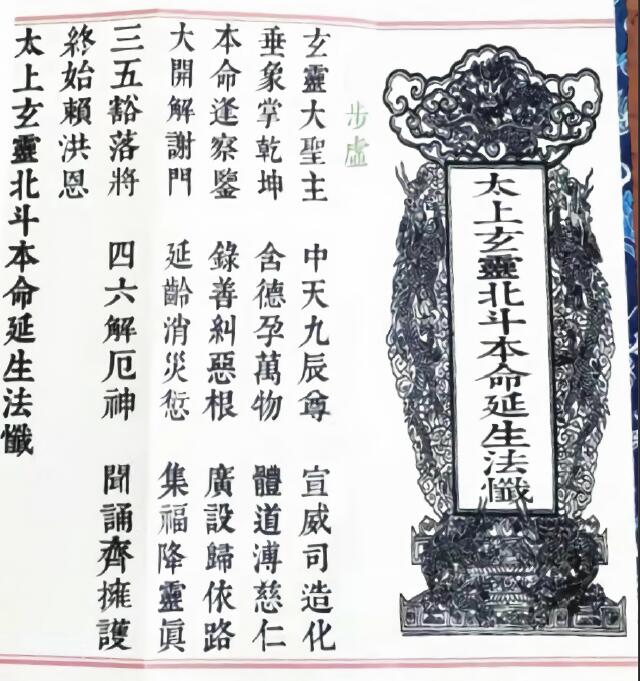 太上玄靈北斗本命延生法懺
步虛
玄靈大聖主 中天九辰尊 宣威司造化
垂象掌乾坤 含德孕萬物 體道溥慈仁
本命逢察鑒 錄善糾惡根 廣設歸依路
大開解謝門 延齡消災愆 集福降靈眞
三五豁落將 四六解厄神 聞誦齊擁護
終始賴洪恩
太上玄靈北斗本命延生法懺